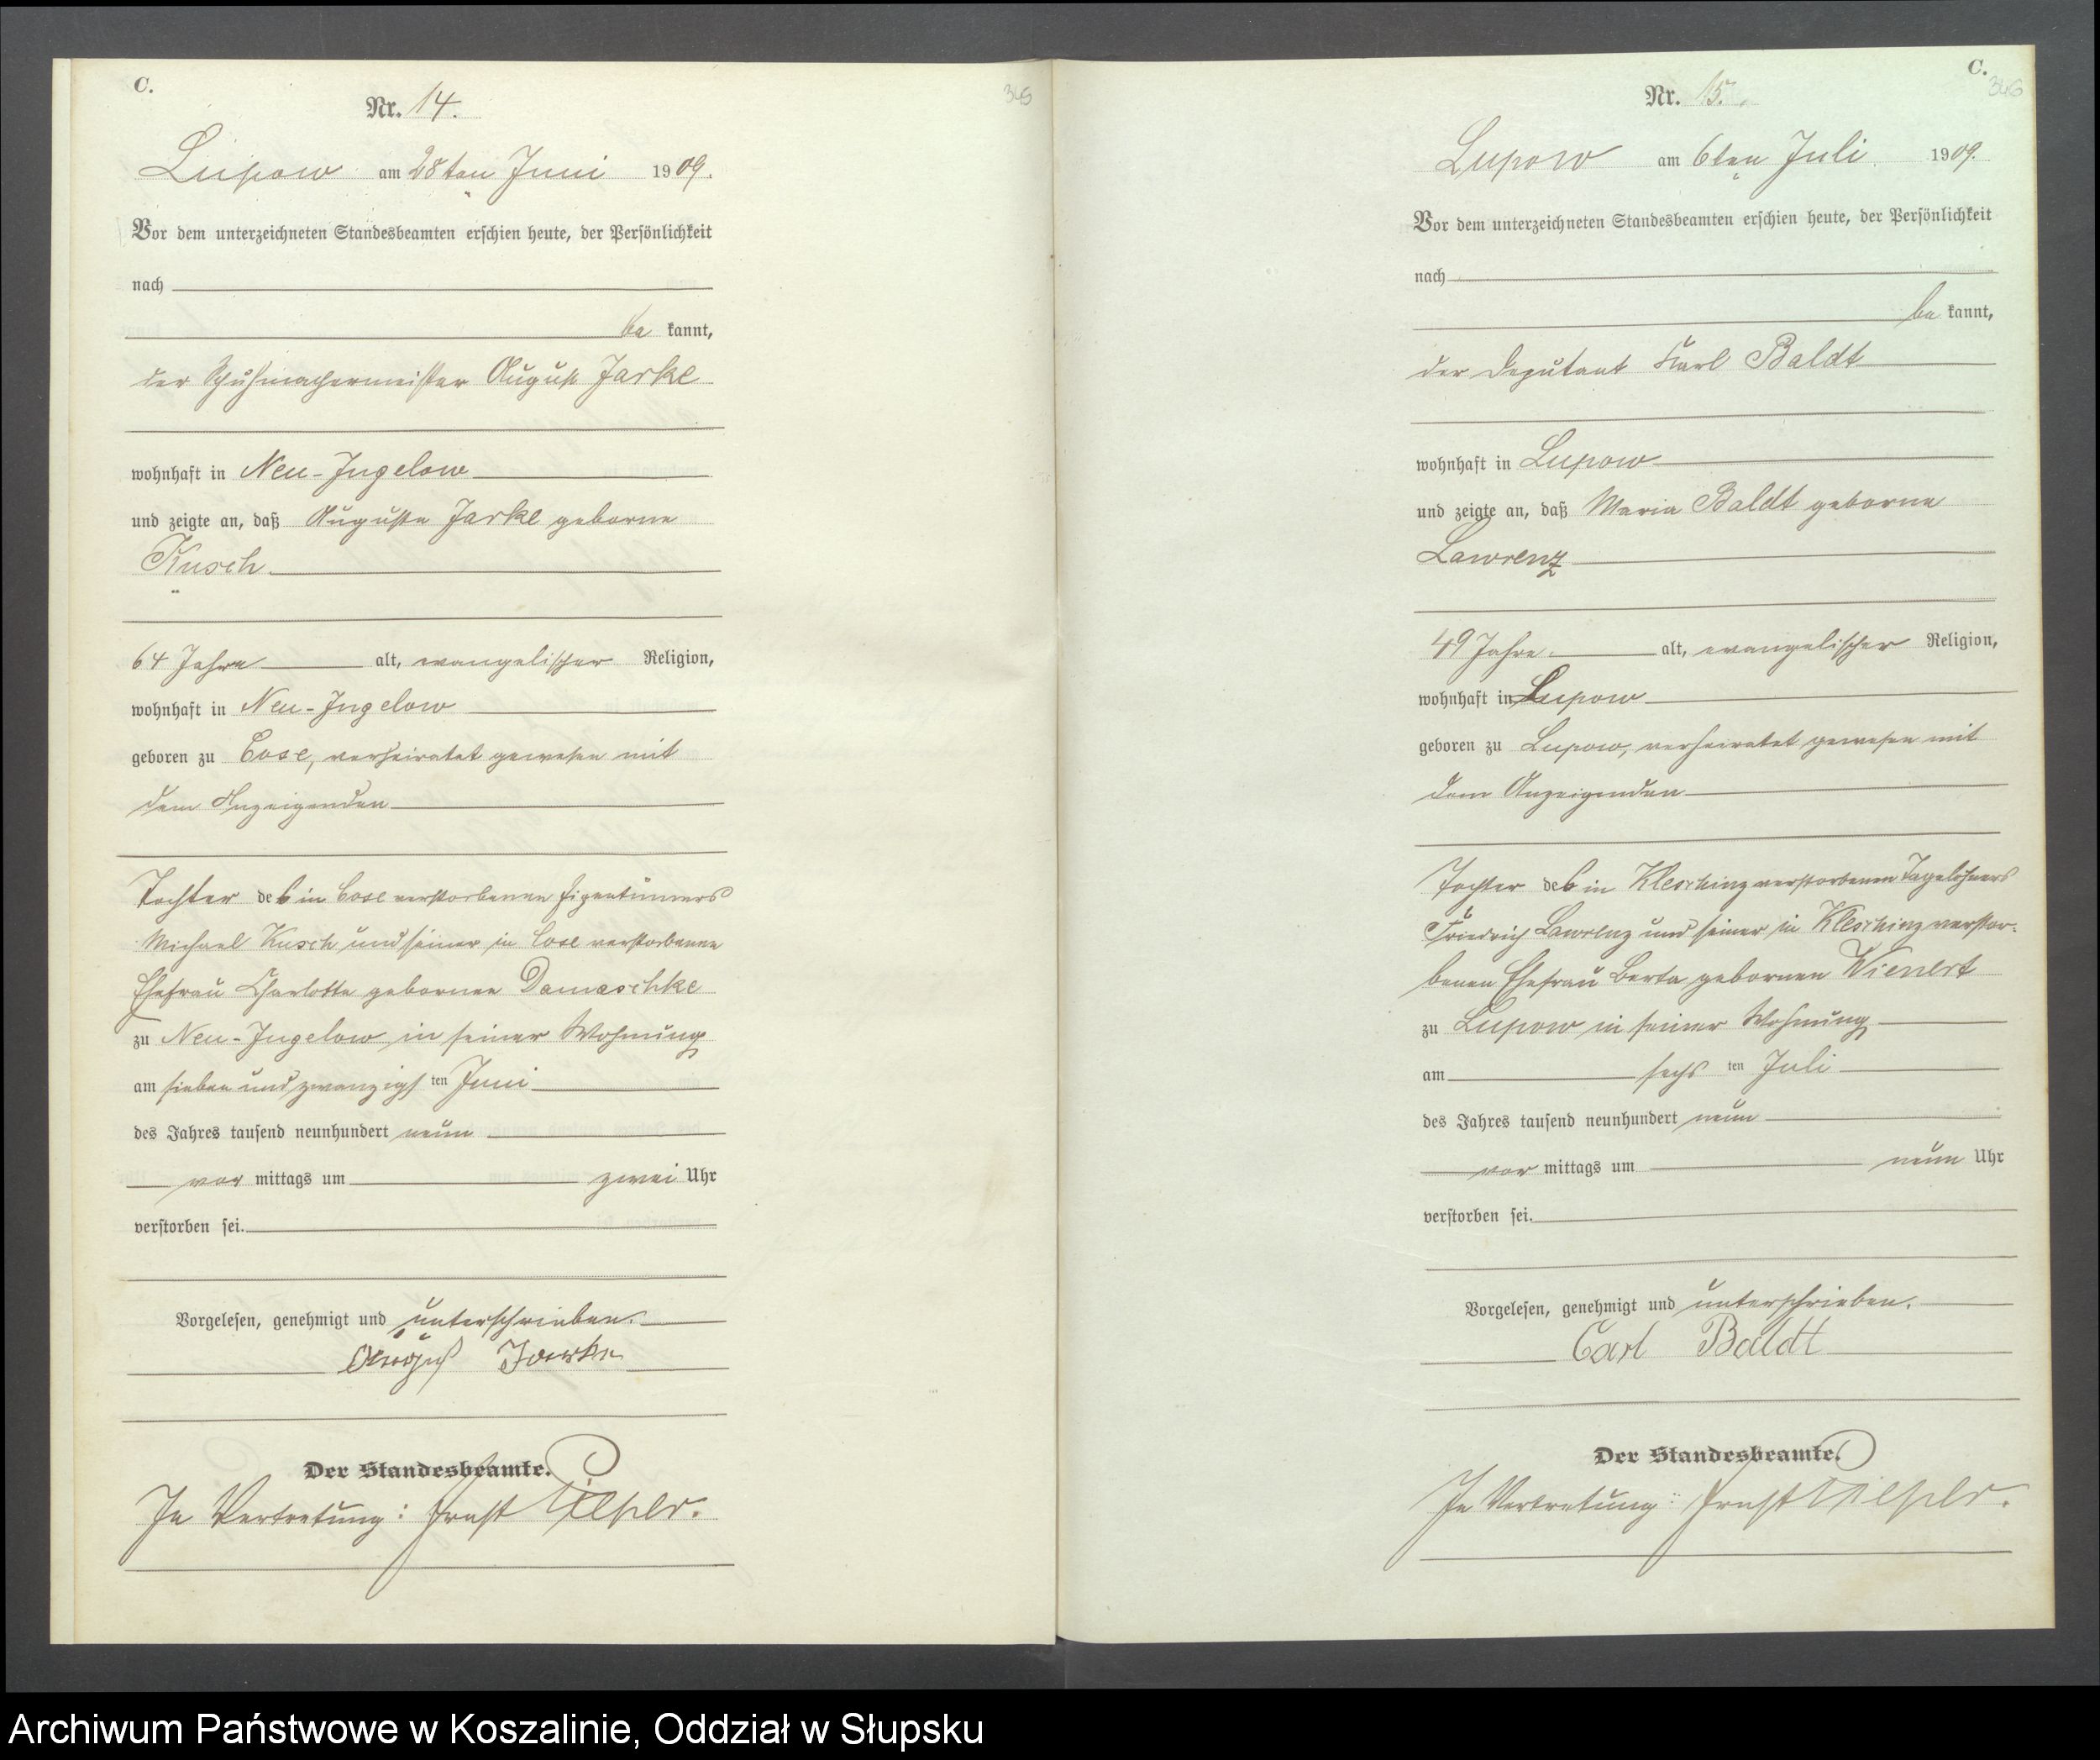 C.
345
Nr. 14.
Lupow am 28ten Juni 1909.
Vor dem unterzeichneten Standesbeamten erschien heute, der Persönlichkeit
nach
be kannt,
der Schuhmachermeister August Jarke
wohnhaft in Neu-Jugelow
und zeigte an, daß Auguste Jarke geborne
Kusch
64 Jahre alt, evangelischer Religion,
wohnhaft in Neu-Jugelow
geboren zu Cose, verheiratet gewesen mit
dem Anzeigenden
Tochter des in Cose verstorbenen Eigentümers
Michael Kusch und seiner in Cose verstorbenen
Ehefrau Charlotte gebornen Damaschke
zu Neu-Jugelow in seiner Wohnung
am sieben und zwanzigsten Juni
des Jahres tausend neunhundert neun
vor mittags um zwei Uhr
verstorben sei.
Vorgelesen, genehmigt und unterschrieben.
August Jarke
Der Standesbeamte.
In Vertretung: Ernst
C.
346
Nr. 15.
Lupow am 6ten Juli 1909.
Vor dem unterzeichneten Standesbeamten erschien heute, der Persönlichkeit
nach
be kannt,
der Deputant Karl Baldt
wohnhaft in Lupow
und zeigte an, daß Maria Baldt geborne
Lawrenz
49 Jahre alt, evangelischer Religion,
wohnhaft in Lupow
geboren zu Lupow, verheiratet gewesen mit
dem Anzeigenden
Tochter des in Kleschinz verstorbenen Tagelöhners
Friedrich Lawrenz und seiner in Kleschinz verstor-
benen Ehefrau Berta gebornen Wienert
zu Lupow in seiner Wohnung
am sechs ten Juli
des Jahres tausend neunhundert neun
vor mittags um neun Uhr
verstorben sei.
Vorgelesen, genehmigt und unterschrieben.
Carl Baldt
Der Standesbeamte.
In Vertretung: Ernst
Archiwum Państwowe w Koszalinie, Oddział w Słupsku